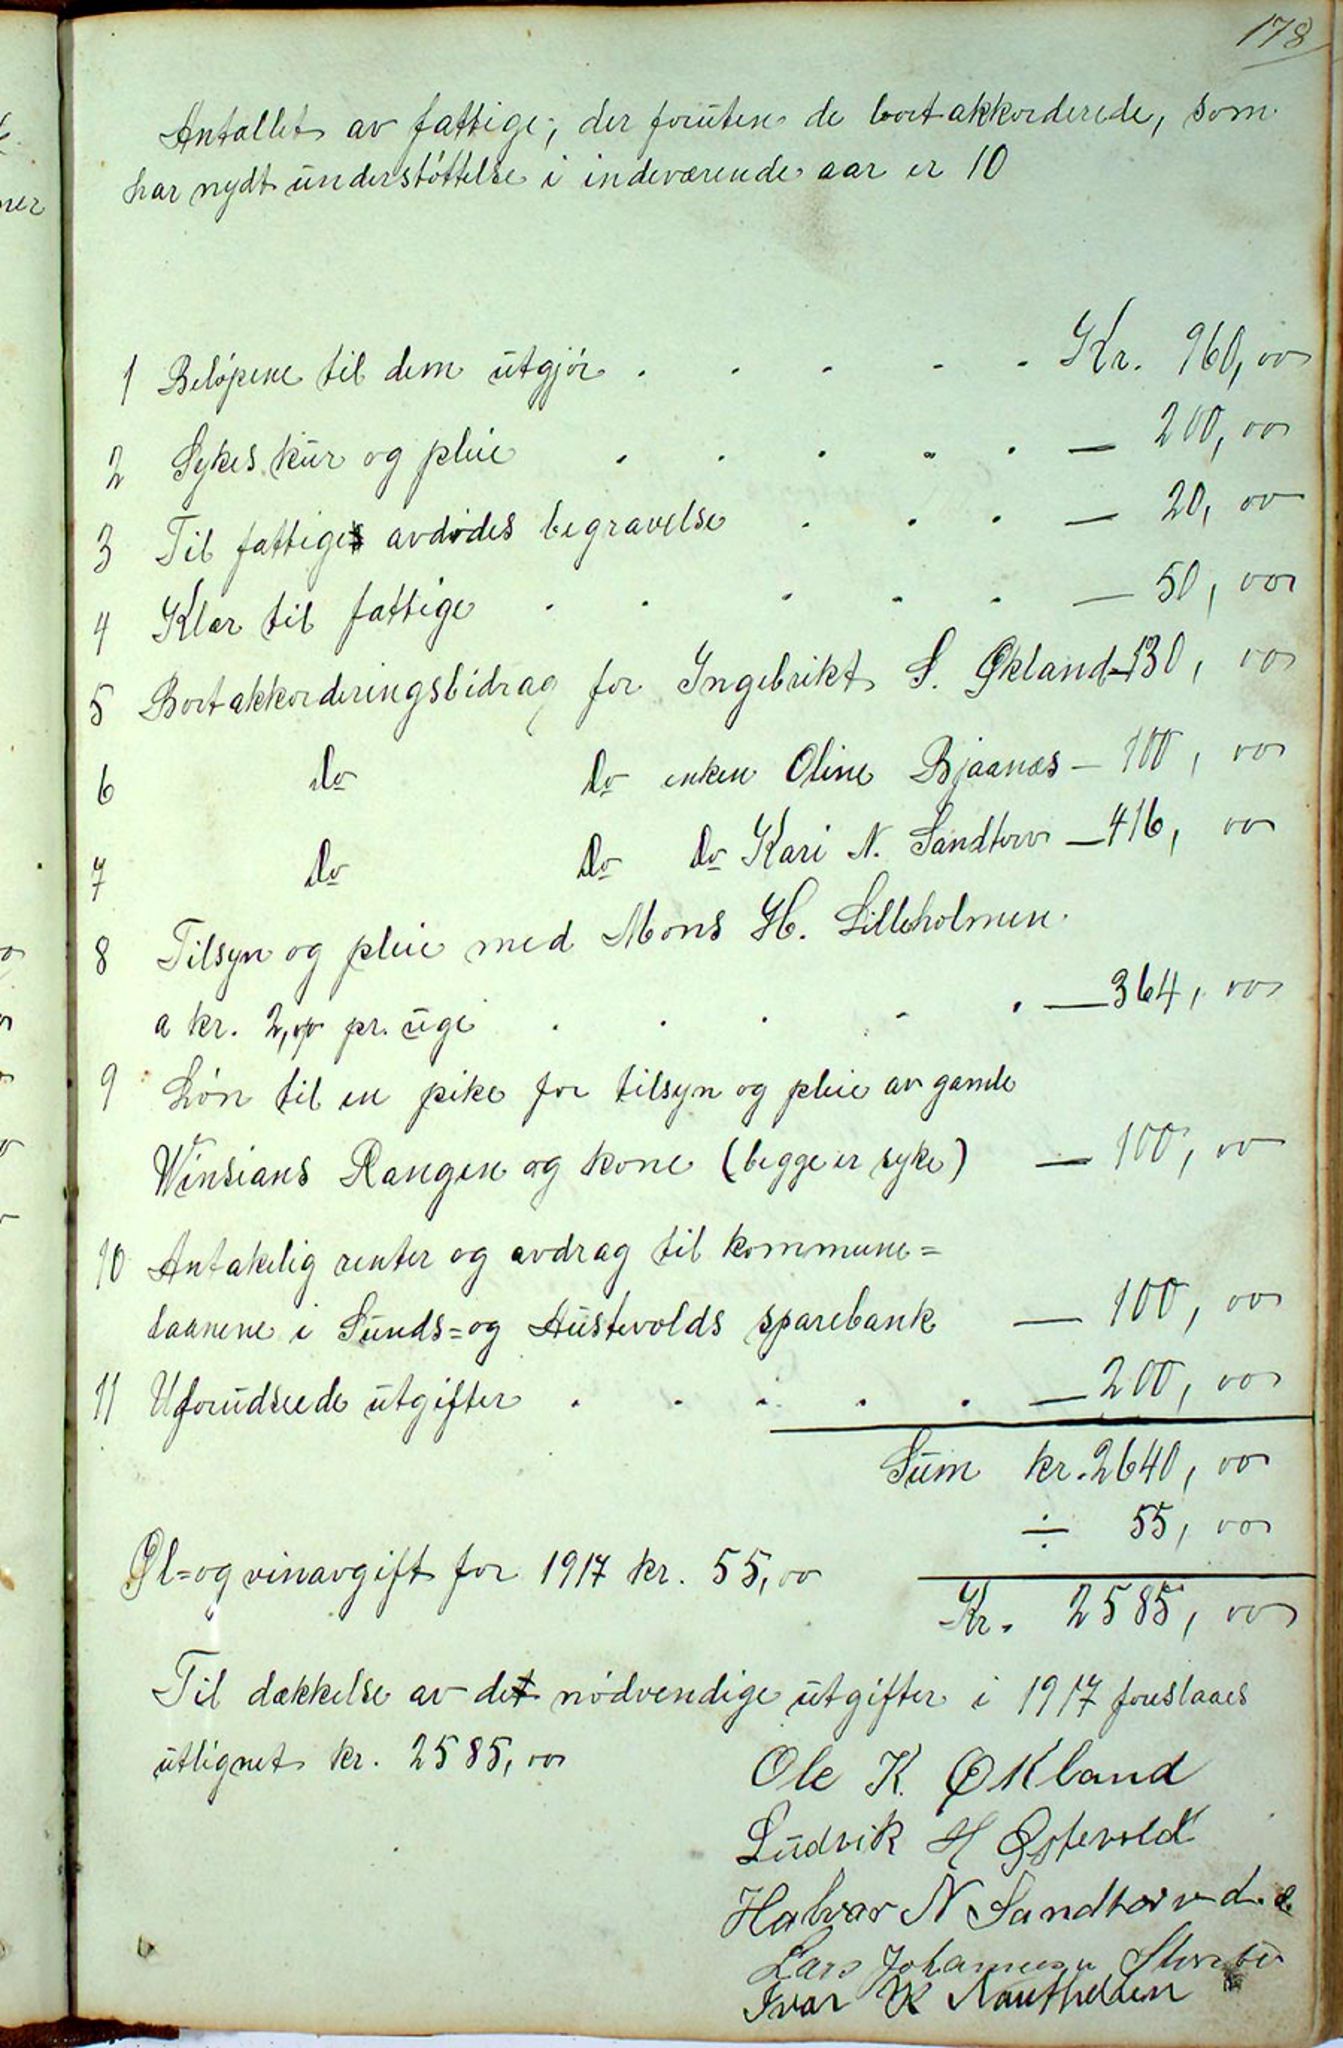 178
Antallet av fattige, der foruten de bortakkorderede, som
har nydt understøttelse i indeværende aar er 10
1 Beløpene til dem utgjør . . . . . Kr. 960,00
2 Sykes kur og pleie . . . . . — 200,00
3 Til fattiges avdødes begravelse . . . — 20,00
4 Klær til fattige . . . . . — 50,00
5 Bortakkorderingsbidrag for Ingebrikt S. Økland — 130,00
6 Do Do enken Oline Bjaanæs — 100,00
7 Do Do Do Kari N. Sandtorv — 416,00
8 Tilsyn og pleie med Mons H. Lilleholmen
a kr. 2,00 pr. uge . . . . . — 364,00
9 Løn til en pike for tilsyn og pleie av gamle
Winsians Rangen og kone (begge er syke) — 100,00
10 Antakelig renter og avdrag til kommune=
laanene i Sunds=og Austevolds sparebank — 100,00
11 Uforudseede utgifter . . . . . — 200,00
Sum kr. 2640,00
÷ 55,00
Øl=og vinavgift for 1917 kr. 55,00
Kr. 2585,00
Til dækkelse av det nødvendige utgifter i 1917 foreslaaes
utlignet kr. 2585,00
Ole K. Økland
Ludvik H Østevold
Halvar N Sandtorv d.e.
Lars Johannesen
Ivar K